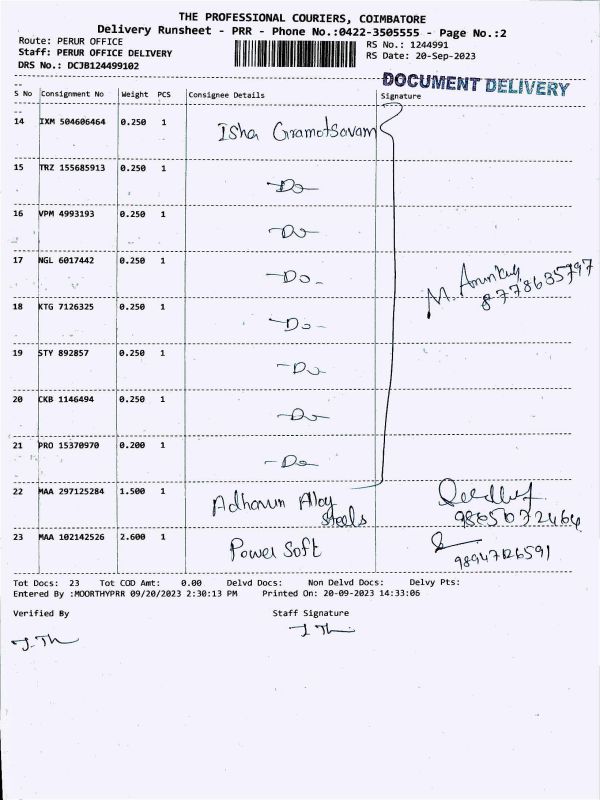 THE PROFESSIONAL COURIERS, COIMBATORE
Delivery Runsheet - PRR - Phone No.:0422-3505555 - Page No.:2
Route: PERUR OFFICE
RS No.: 1244991
Staff: PERUR OFFICE DELIVERY
RS Date: 20-Sep-2023
DRS No.: DCJB124499102
DOCUMENT DELIVERY
S No Consignment No Weight PCS Consignee Details Signature
14 IXM 504606464 0.250 1 Isha Gramotsavam
15 TRZ 155685913 0.250 1 -Do-
16 VPM 4993193 0.250 1 -Do-
17 NGL 6017442 0.250 1 -Do-
M. Arunkug
8778635797
18 KTG 7126325 0.250 1 -Do-
19 STY 892857 0.250 1 -Do-
20 CKB 1146494 0.250 1 -Do-
21 PRO 15370970 0.200 1 -Do-
22 MAA 297125284 1.500 1 Adhavun Alloy
Steels 9865072464
23 MAA 102142526 2.600 1 Power Soft
98947126591
Tot Docs: 23 Tot COD Amt: 0.00 Delvd Docs: Non Delvd Docs: Delvy Pts:
Entered By :MOORTHYPRR 09/20/2023 2:30:13 PM Printed On: 20-09-2023 14:33:06
Verified By Staff Signature